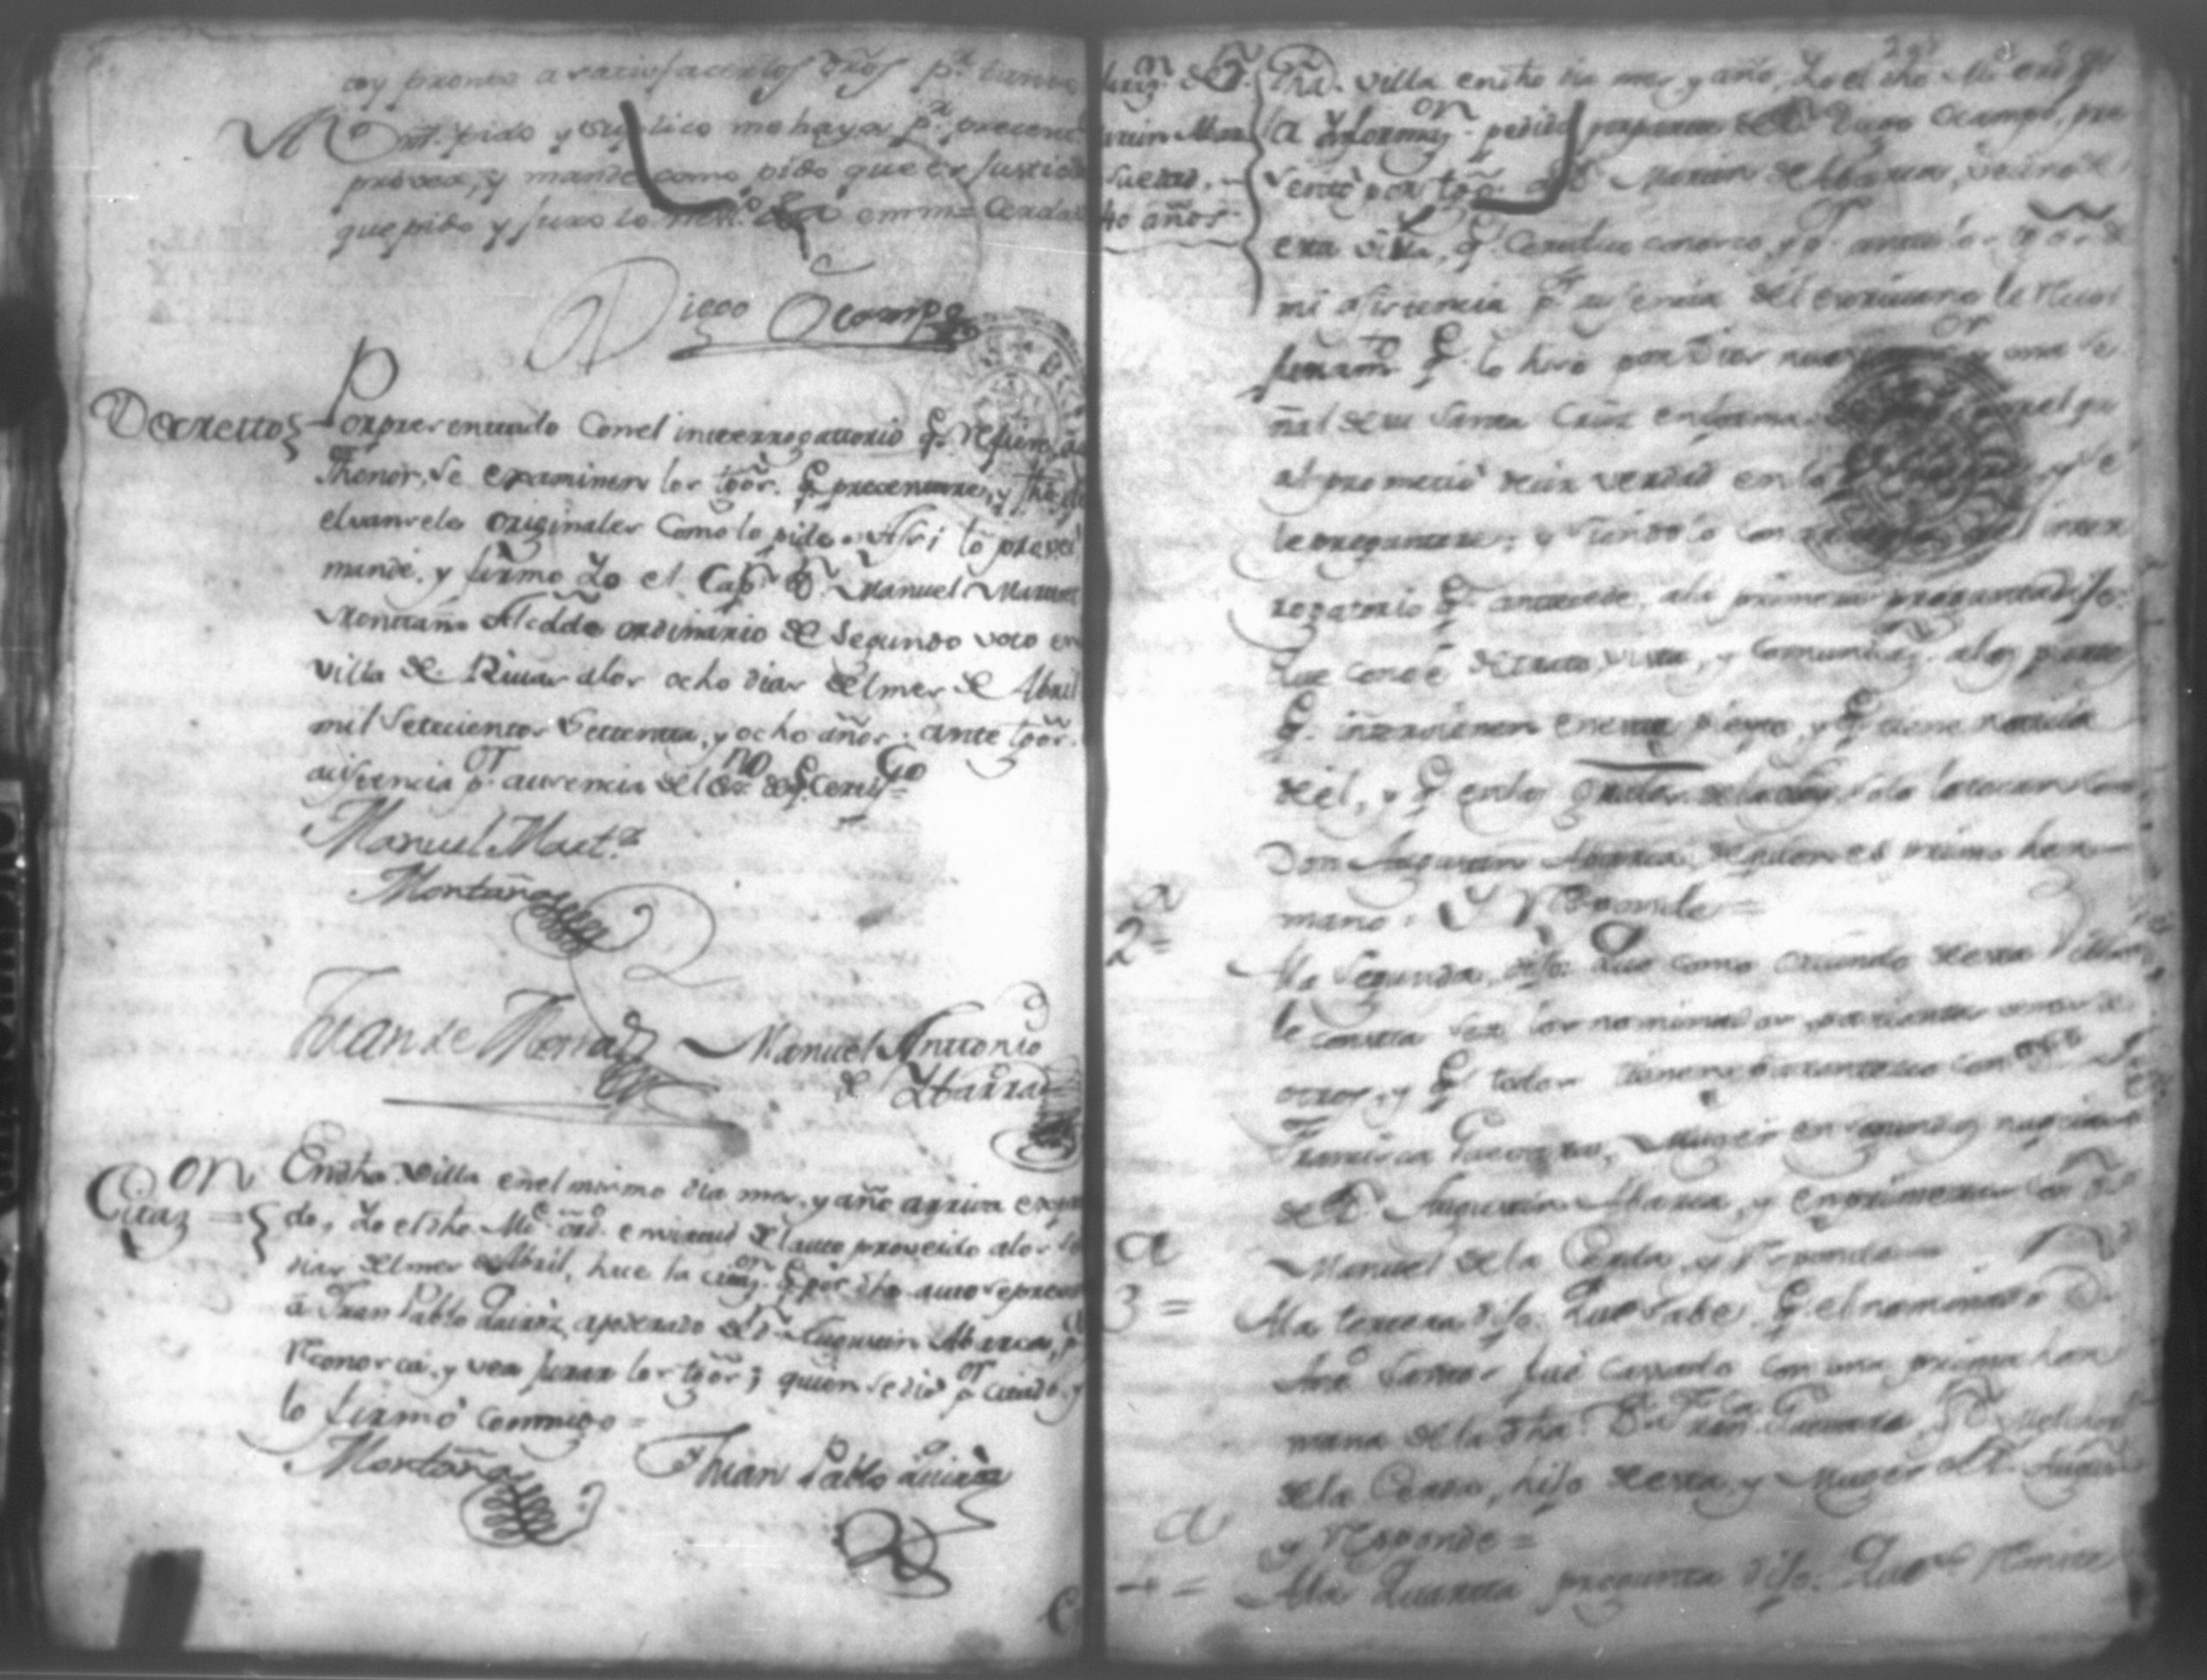 toy pronto a satisfacerlos dhos p.ª tanto
A Vmd. pido y suplico me haya p.r precent
provea, y mande como pido que es Justicia
que pido y Juro lo ness.º en mi
Diego Ocampo
Decretto
Por presenttado Con el intterrogattorio q.e refiere
Thenor, se examinen los tgõs. q.e precentare, y fho
elvanrele originales Como lo pide. Assi lo proveí
mandé, y firmo Yo el Cap.n D.n Manuel Martinez
Monttaño Alcdde ordinario de Segundo voto en
villa de Rivas a los ocho dias del mes de Abril
mil Setecientos Settenta, y ocho años. ante tgõs.
asistencia p.r ausencia del Es.no de q.e Certif.co =
Manuel Mart.z
Montaño
Juan de
Manuel Anttonio
de Ybarra
Citaz.on =
En dha villa en el mismo dia mes, y año arriva expre
do, Yo el dho Al.e ord.o en virtud del auto proveido a los
dias del mes de Abril, hice la citaz.on q.e por dho auto se preven
a Juan Pablo Quiroz apoderado de D.n Augustin Abarca, p.a
reconosca, y vea jurar los tgõs; quien se dio p.r citado, y
lo firmó conmigo =
Montaño
Jhuan Pablo Quiroz
años
dha. villa en dho dia mes, y año, Yo el dho Al.e ord.o
la Ynformaz.on pedida por parte de D.n Diego Ocampo, pre
sentó por tgõ. a D.n Martin de Abarca, vecino de
esta villa, q.e Certifico conosco, y p.r ante los tgõs de
mi asistencia p.r ausencia del escrivano le recivi
juram.to q.e lo hizo por Dios nuestro y una se
ñal de su Santa Cruz en forma
al prometió decir verdad en lo
le preguntare; y siendolo con inter
rogatorio q.e antecede, a la primera pregunta dijo:
Que conoce de trato, vista, y comunicaz.n a las partes
q.e intervienen en este pleyto, y q.e tiene noticia
de el, y q.e en las grales. de la ley solo le tocan con
Don Augustin Abarca, de quien es primo her
mano. Y responde =
2.a =
A la Segunda, dijo: Que como oriundo de esta villa
le consta ser los nominados parientes unos de
otros, y q.e todos tienen parentesco con
Francisca Guevara, Muger en segundas nupcias
de D.n Augustin Abarca, y en primeras con D.n
Manuel de la Cerda, y responde =
3.a =
A la tercera dijo: Que sabe q.e el nominado D.n
Ant.o Santos fue cassado con una prima her
mana de la dha. D.a Fran.ca Guevara, y D.n
de la Cerda, hijo de esta, y Muger de D.n Augus
y responde =
4.a =
A la Quarta pregunta dijo: Que se remite